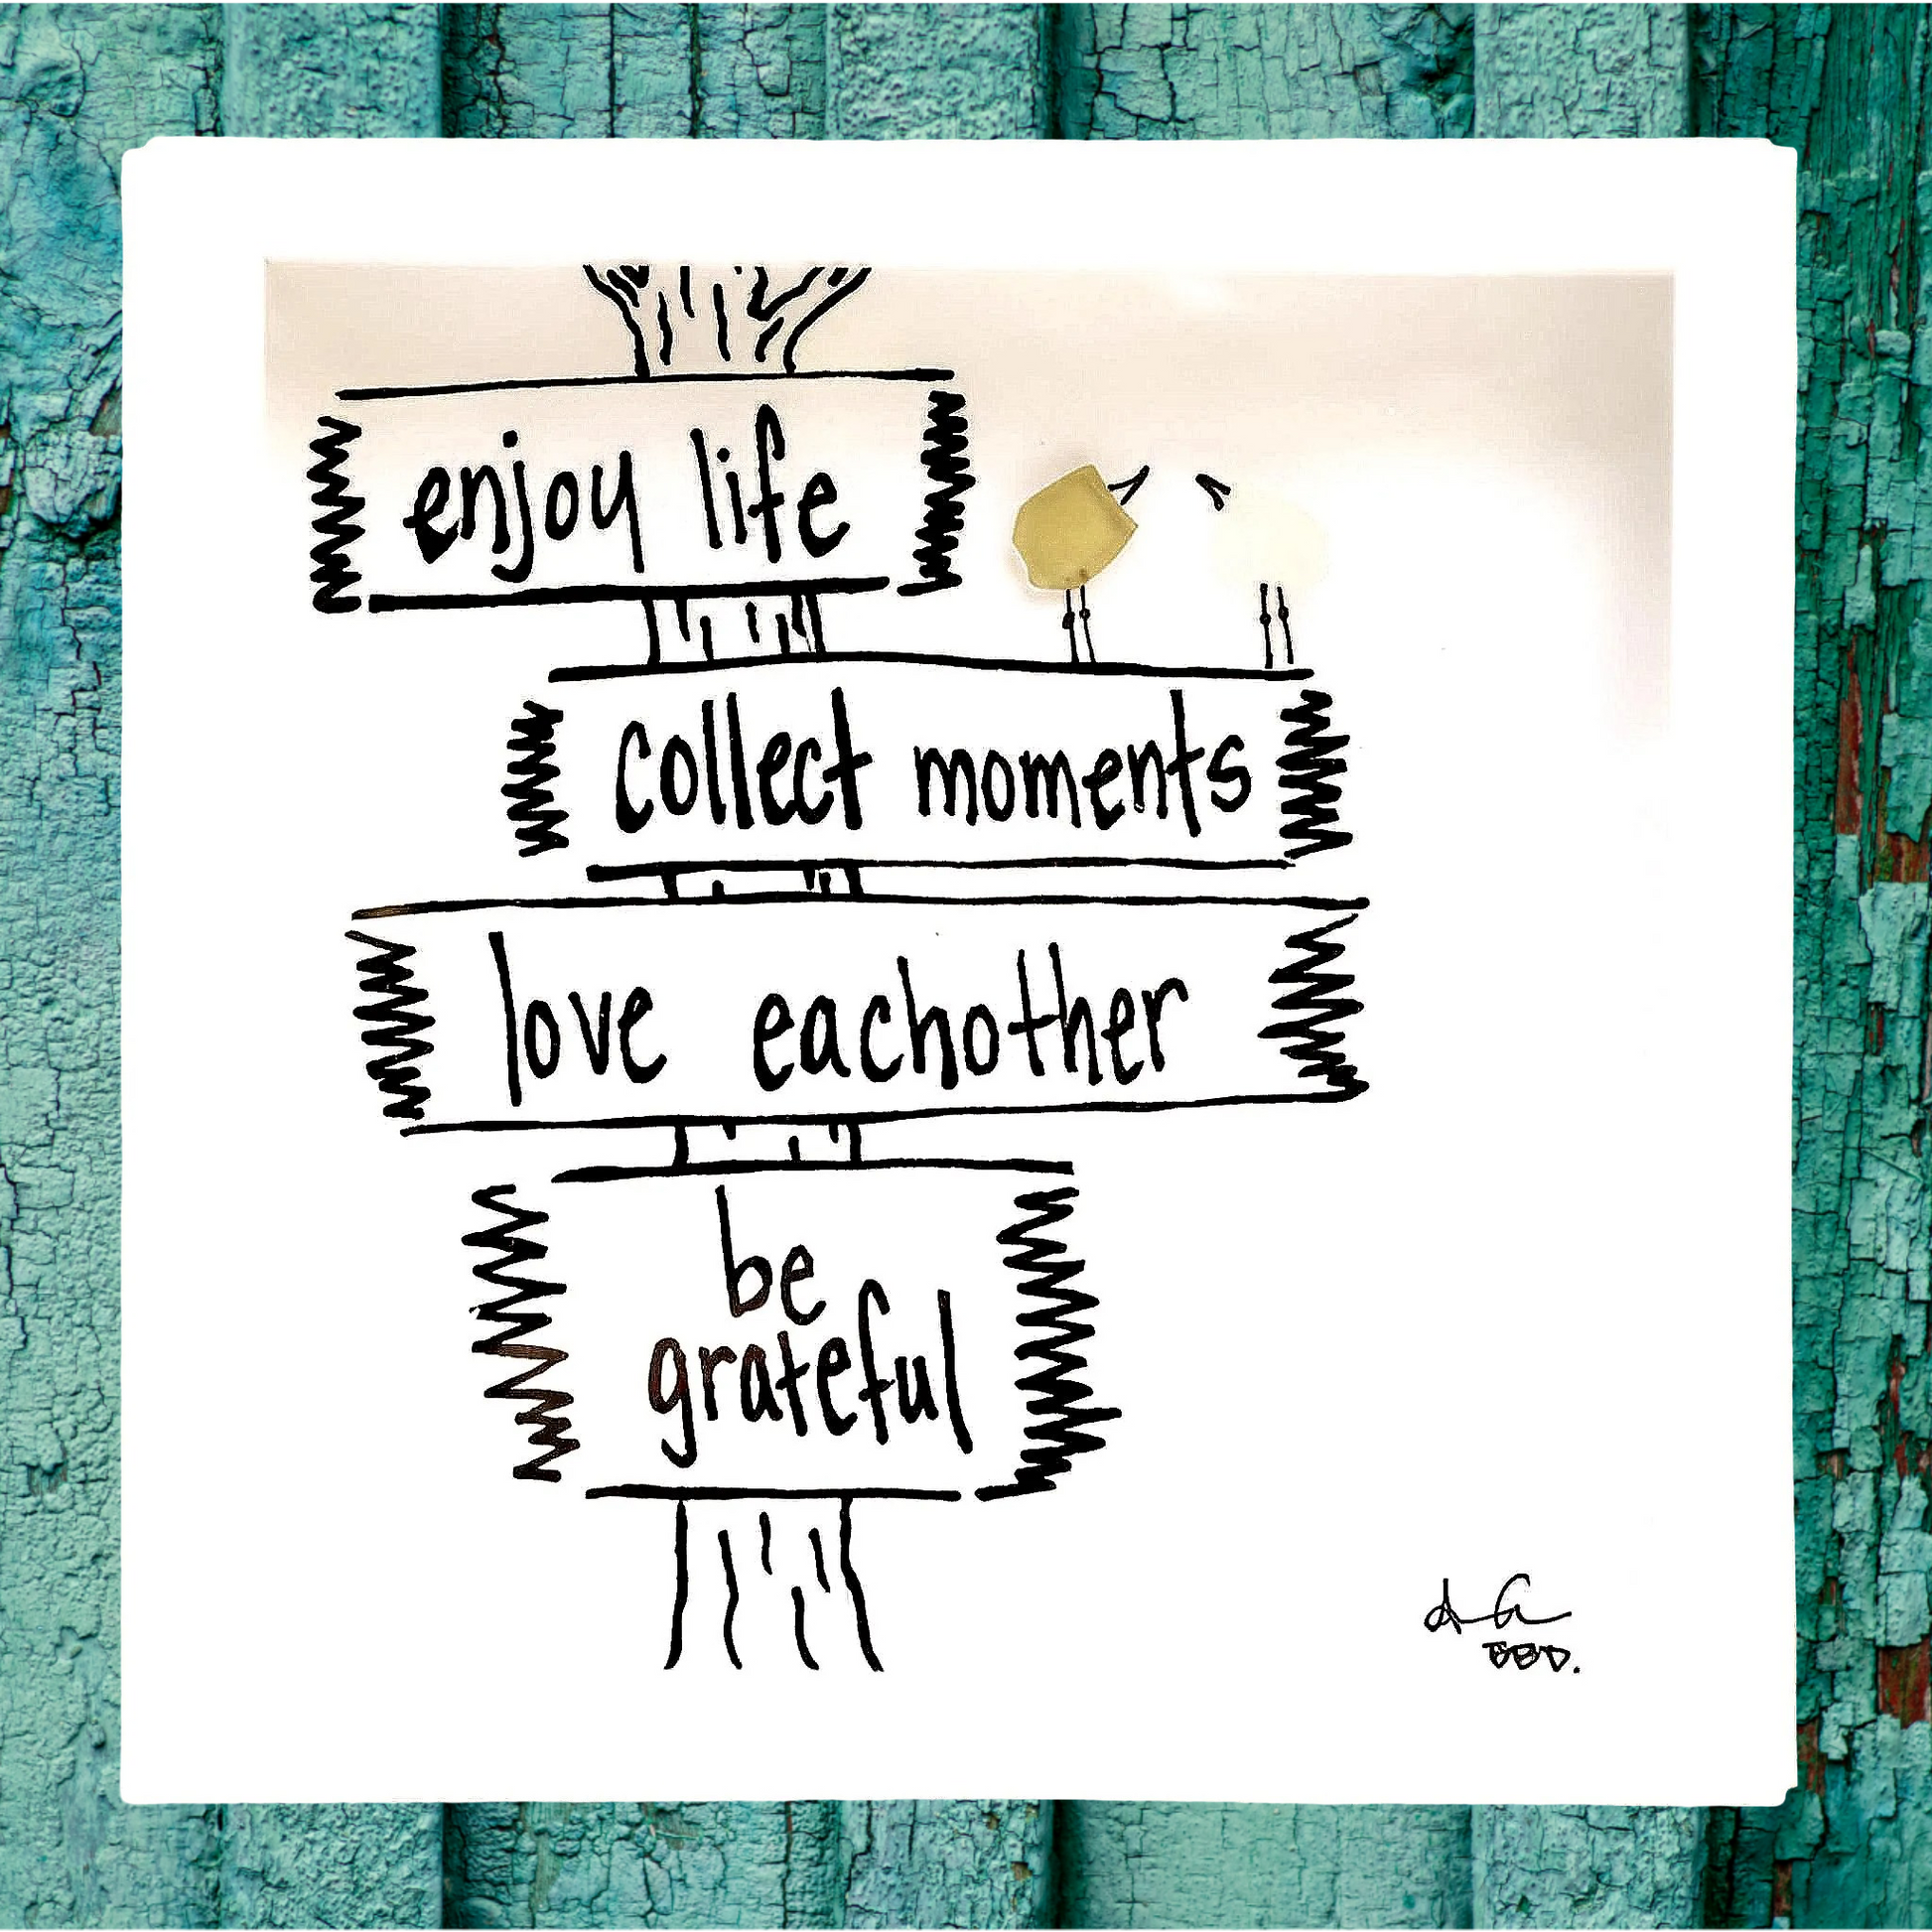 enjoy life
collect moments
love eachother
be
grateful